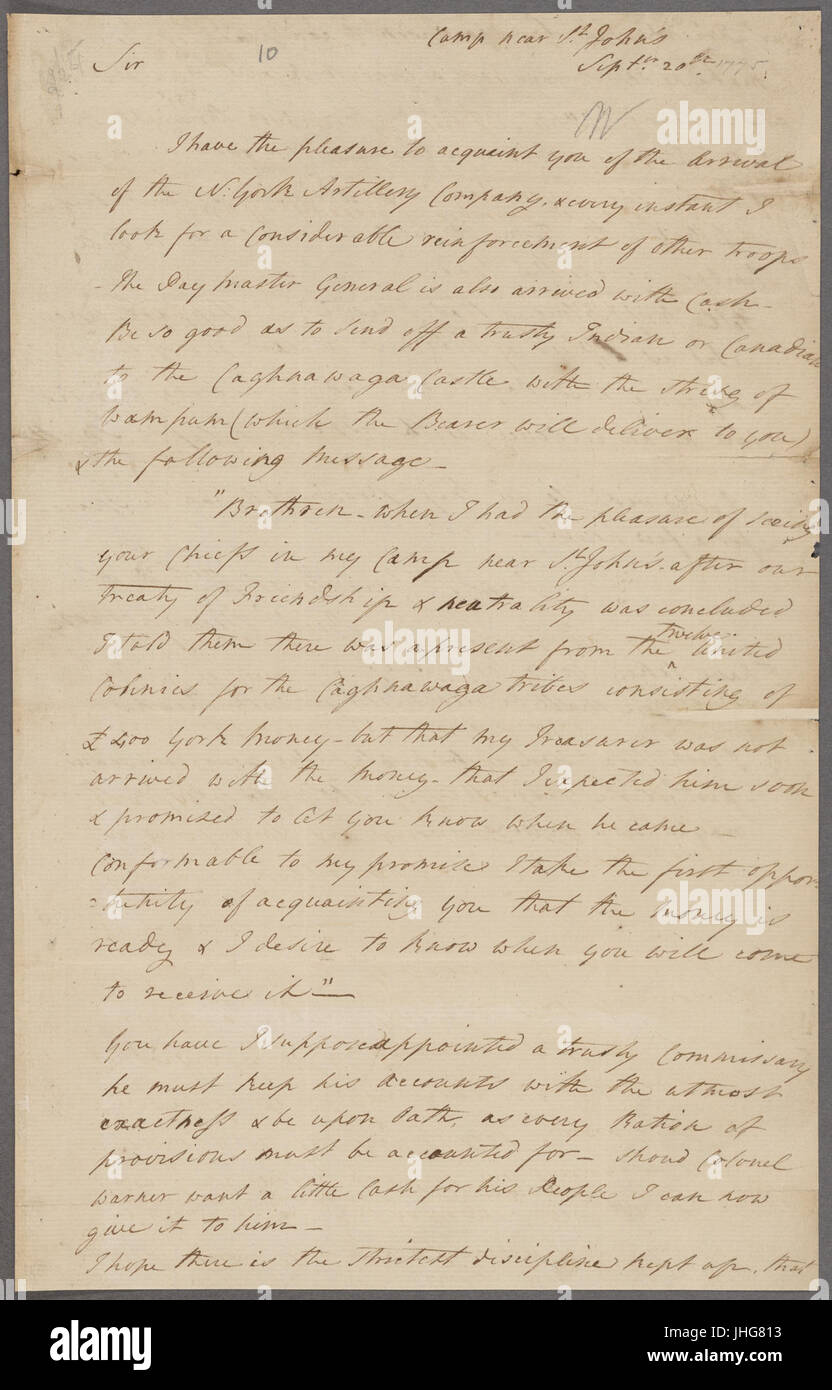 Camp near St. John's
Sir 10 Septr. 20th 1775.
I have the pleasure to acquaint you of the Arrival
of the N: York Artillery Company. & every instant I
look for a considerable reinforcement of other troops
- the Paymaster General is also arrived with Cash -
Be so good as to send off a trusty Indian or Canadian
to the Caghnawaga Castle with the string of
Wampum (which the Bearer will deliver to you)
& the following message -
"Brethren - when I had the pleasure of seeing
your Chiefs in my Camp near St. John's - after our
treaty of Friendship & neutrality was concluded
I told them there was a present from the twelve United
Colonies for the Caghnawaga tribes consisting of
£400 York Money - but that my Treasurer was not
arrived with the money - that I expected him soon
& promised to let you know when he came -
Conformable to my promise I take the first oppor-
-tunity of acquainting you that the money is
ready & I desire to know when you will come
to receive it" -
You have I suppose appointed a trusty Commissary
he must keep his accounts with the utmost
exactness & be upon Oath, as every Ration of
provisions must be accounted for - shoud Colonel
Warner want a little Cash for his People I can now
give it to him -
I hope there is the strictest discipline kept up, that
alamy
Image ID: JHG813
www.alamy.com